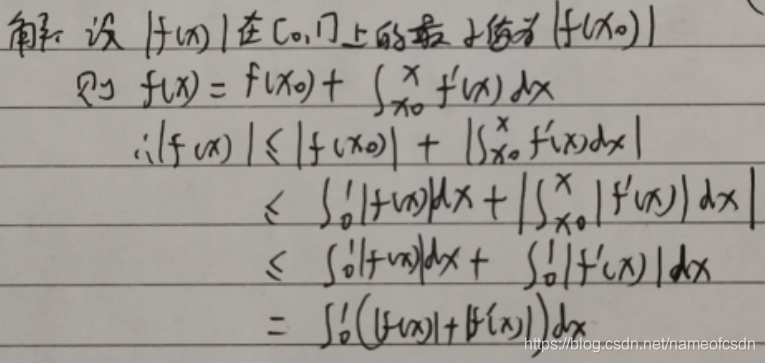 解: 设 |f(x)| 在 [0,1] 上的最小值为 |f(x₀)|
则 f(x) = f(x₀) + ∫_{x₀}^{x} f'(x) dx
∴ |f(x)| ≤ |f(x₀)| + |∫_{x₀}^{x} f'(x) dx|
≤ ∫₀¹ |f(x)| dx + |∫_{x₀}^{x} |f'(x)| dx|
≤ ∫₀¹ |f(x)| dx + ∫₀¹ |f'(x)| dx
= ∫₀¹ (|f(x)| + |f'(x)|) dx
https://blog.csdn.net/nameofcsdn